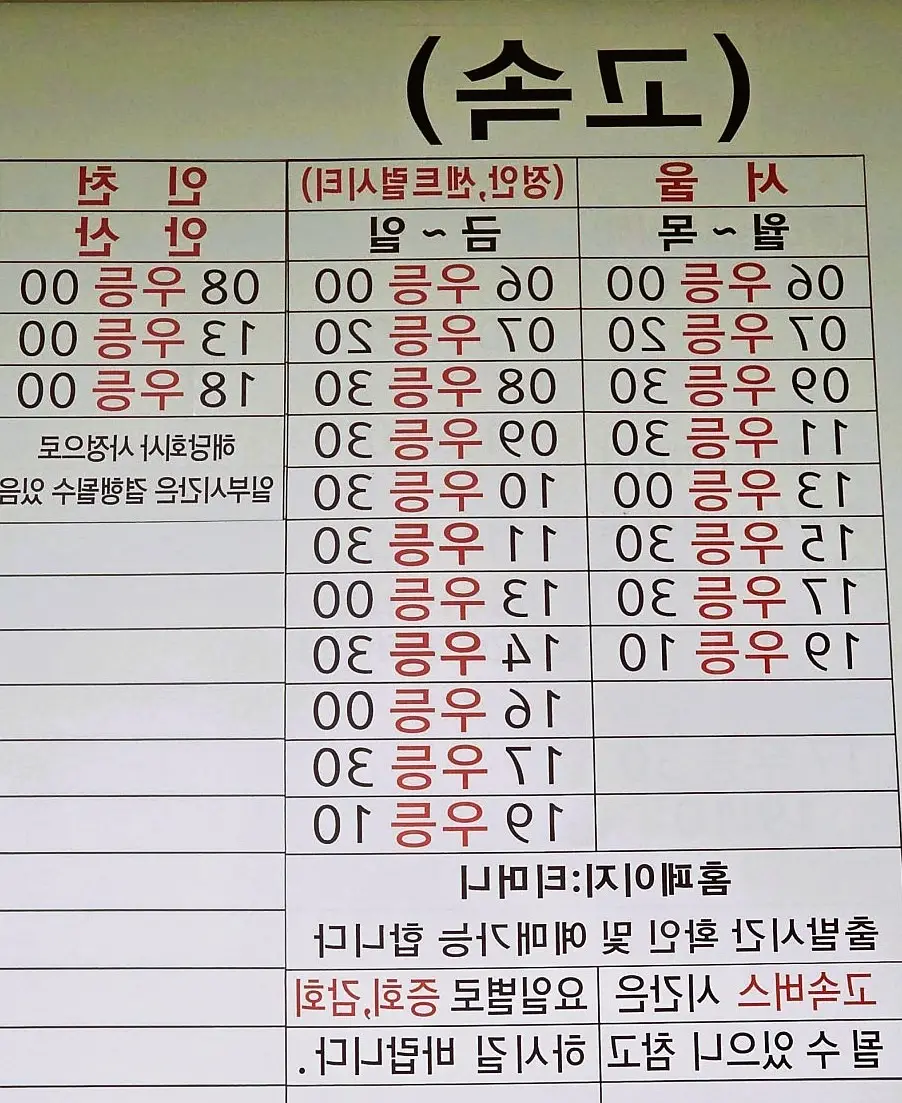 (고속)
서 울 (정안,센트럴시티) 인 천
월 ~ 목 금 ~ 일 안 산
06 우등 00 06 우등 00 08 우등 00
07 우등 20 07 우등 20 13 우등 00
09 우등 30 08 우등 30 18 우등 00
11 우등 30 09 우등 30 해당회사 사정으로
13 우등 00 10 우등 30 일부시간은 결행될수 있음
15 우등 30 11 우등 30
17 우등 30 13 우등 00
19 우등 10 14 우등 30
16 우등 00
17 우등 30
19 우등 10
홈페이지:티머니
출발시간 확인 및 예매가능 합니다
고속버스 시간은 요일별로 증회,감회
될 수 있으니 참고 하시길 바랍니다.